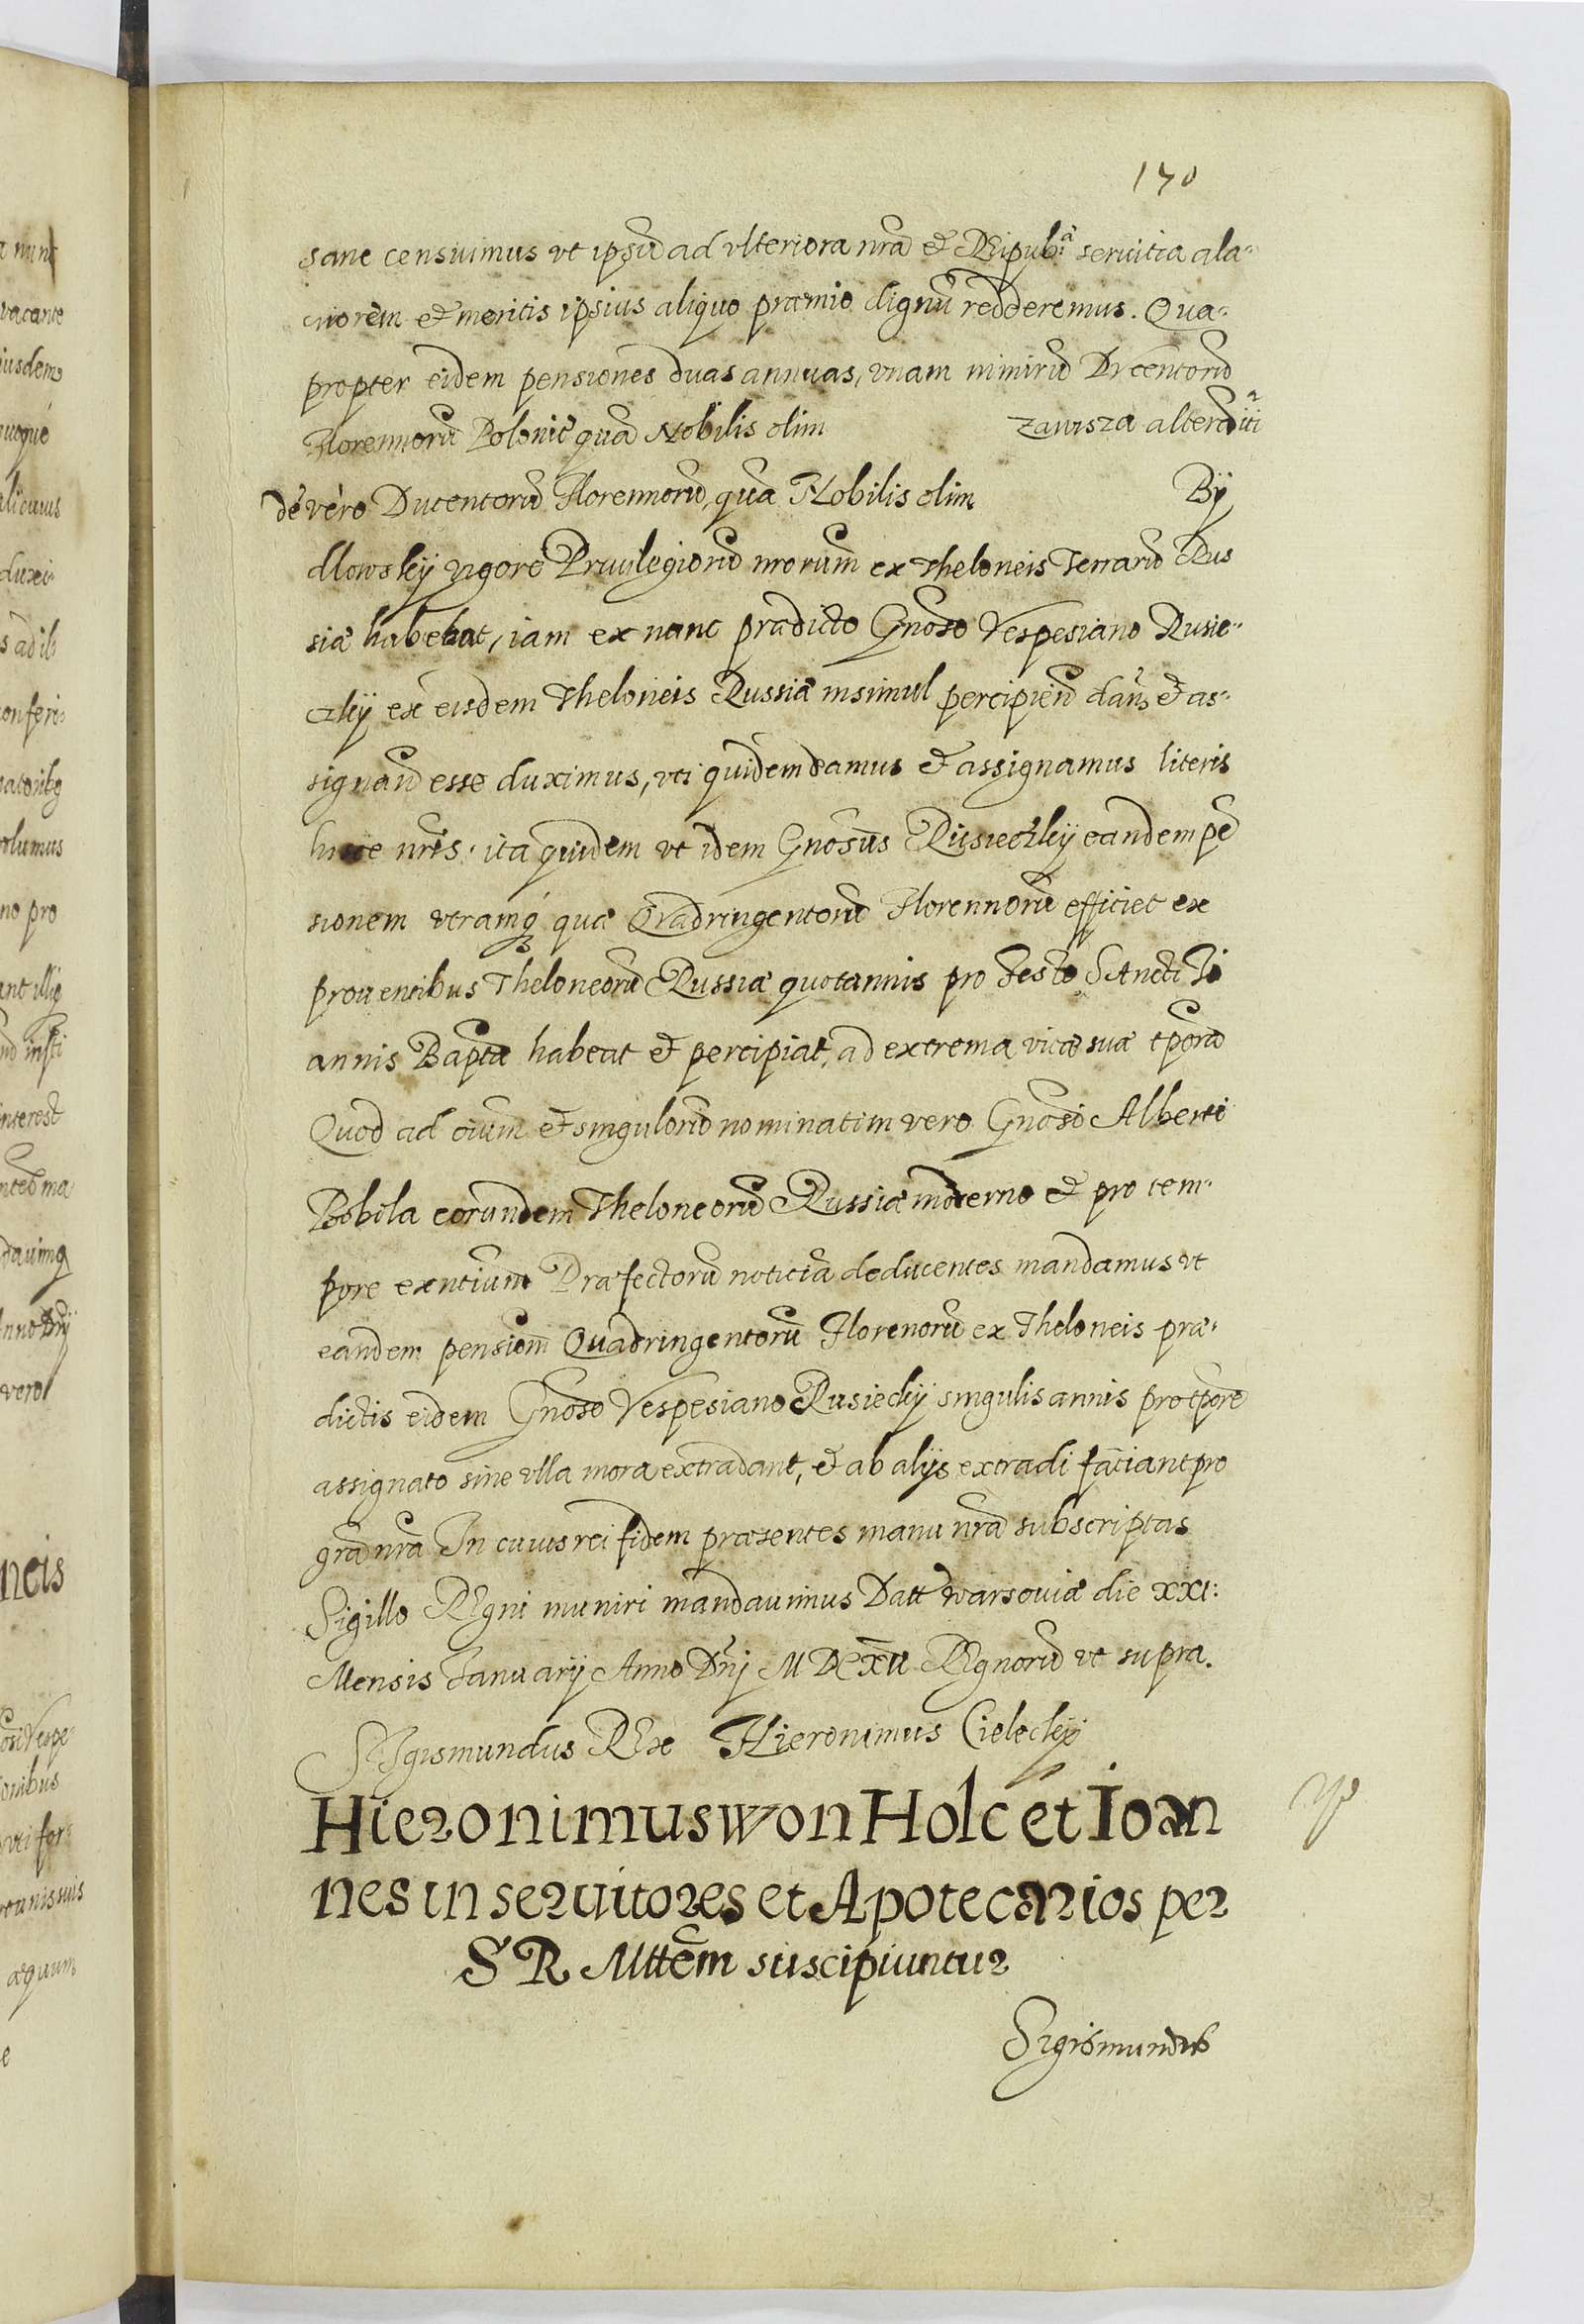 170
sane censuimus vt ipsū ad vlteriora nrā et REipub: seruitia ala-
criorem et meritis ipsius aliquo præmio dignū redderemus. Qua-
propter eidem pensiones duas annuas, vnam nimirū Ducentorū
Florennorū Polonic quā Nobilis olim Zawisza alterā iti
dē vero Ducentorū Florennorū, quā Nobilis olim By
dlowskÿ vigore Priuilegiorū nrorum ex Theloneis Terrarū Rus
siæ habebat, iam ex nunc prædicto Gnōso Vespesiano Rusie-
czkÿ ex eisdem Theloneis Russiæ insimul percipien̄ dan̄s et as-
signan̄ esse duximus, vti quidem damus et assignamus literis
hisce nr̄is. ita quidem vt idem Gnōsus Rusieczkÿ eandem pē
sionem vtramq́ quæ Qvadringentorū Florennorū efficiet ex
prouentibus Theloneorū Russiæ quotannis pro Festo SAncti Io
annis Baptæ habeat et percipiat, ad extrema vitæ suæ tpora
Quod ad oium et singulorū nominatim vero Gnōsi Alberti
Bobola eorundem Theloneorū Russiæ moderno et pro tem-
pore exntium Præfectorū noticiā deducentes mandamus vt
eandem pensiom̄ Quadringentorū Florenorū ex Theloneis præ-
dictis eidem Gnōso Vespesiano Rusieckÿ singulis annis pro tpore
assignato sine vlla mora extradant, et ab alijs extradi faciant pro
grā nrā In cuius rei fidem præsentes manu nrā subscriptas
Sigillo REgni muniri mandauimus Datt Warsouiæ die XXI:
Mensis Ianuarÿ Anno Dnj M DC XII REgnorū vt supra.
SIgismundus REx Hieronimus Cieleckÿ
Hieronimus won Holc et Ioan
nes in seruitores et Apotecarios per
S R Mttem suscipiuntur
Sigismundus